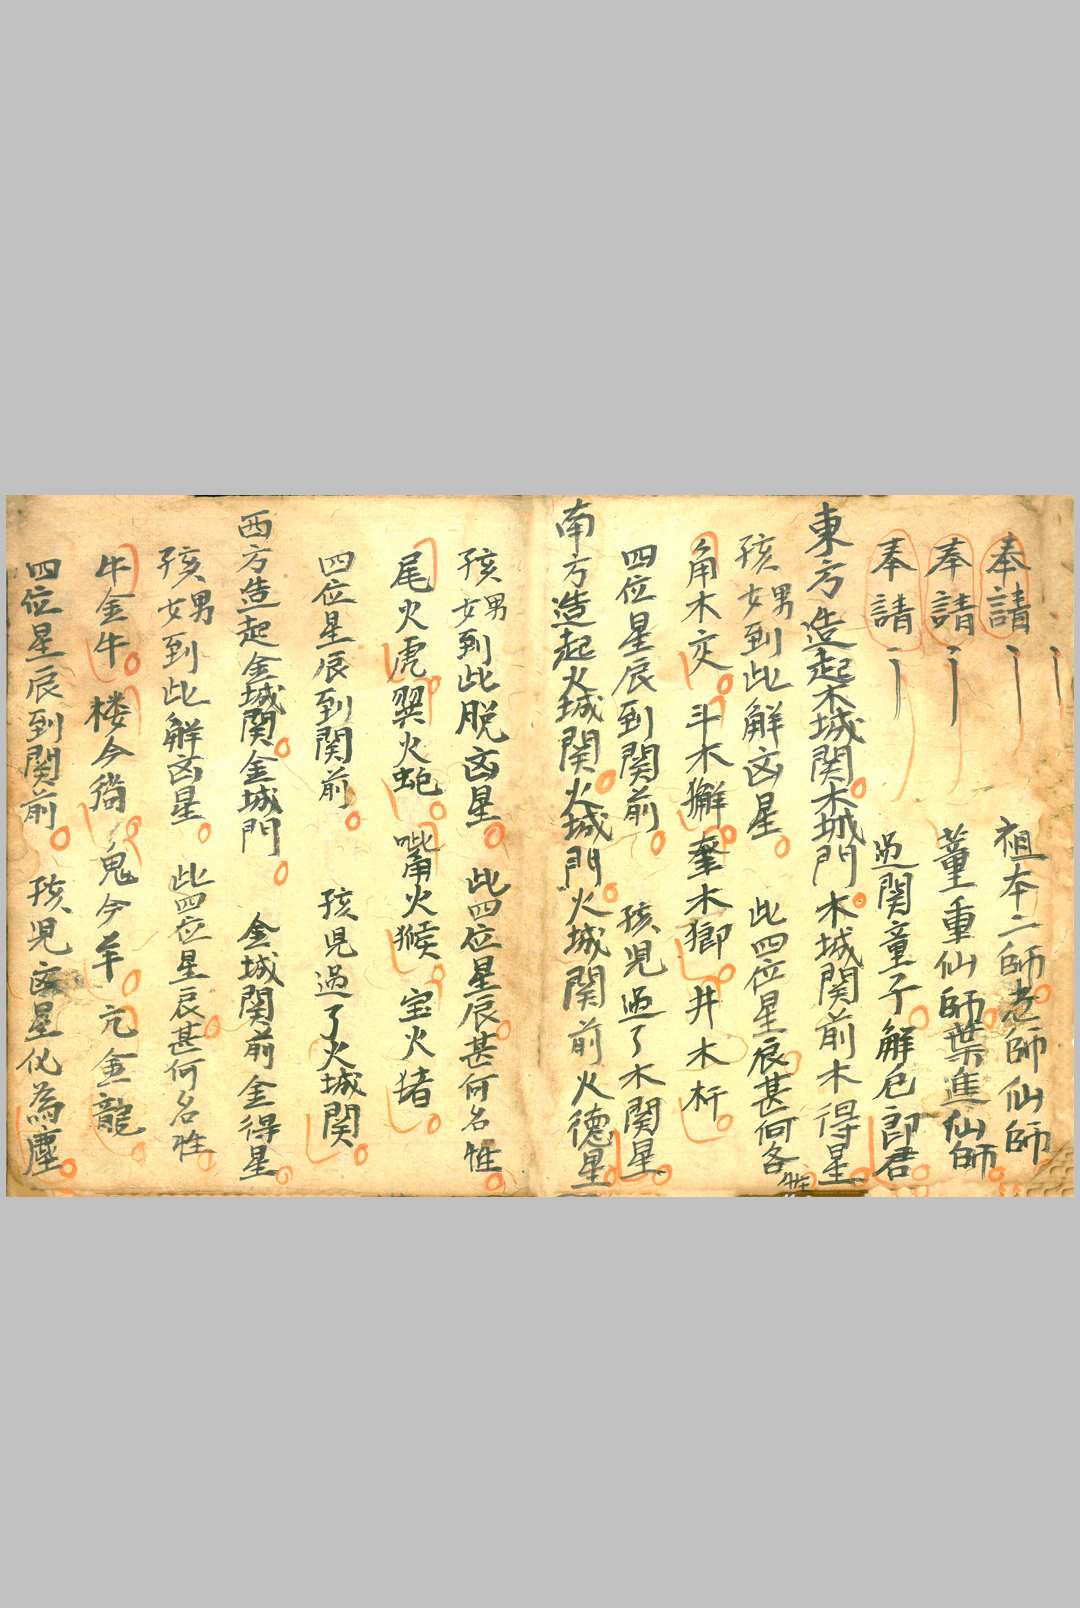 奉請 祖本二師老師仙師
奉請 董重仙師葉進仙師
奉請 過関童子解厄郎君
東方造起木城関木城門 木城関前木得星
孩男女到此解凶星 此四位星辰甚何名姓
角木交 斗木獬 奎木 井木杆
四位星辰到関前 孩児過了木関星
南方造起火城関火城門 火城関前火德星
孩男女到此脱凶星 此四位星辰甚何名姓
尾火虎 翼火蛇 嘴火猴 宝火猪
四位星辰到関前 孩児過了火城関
西方造起金城関金城門 金城関前金得星
孩男女到此解凶星 此四位星辰甚何名姓
牛金牛 楼今狗 鬼今羊 亢金龍
四位星辰到関前 孩児凶星化為塵